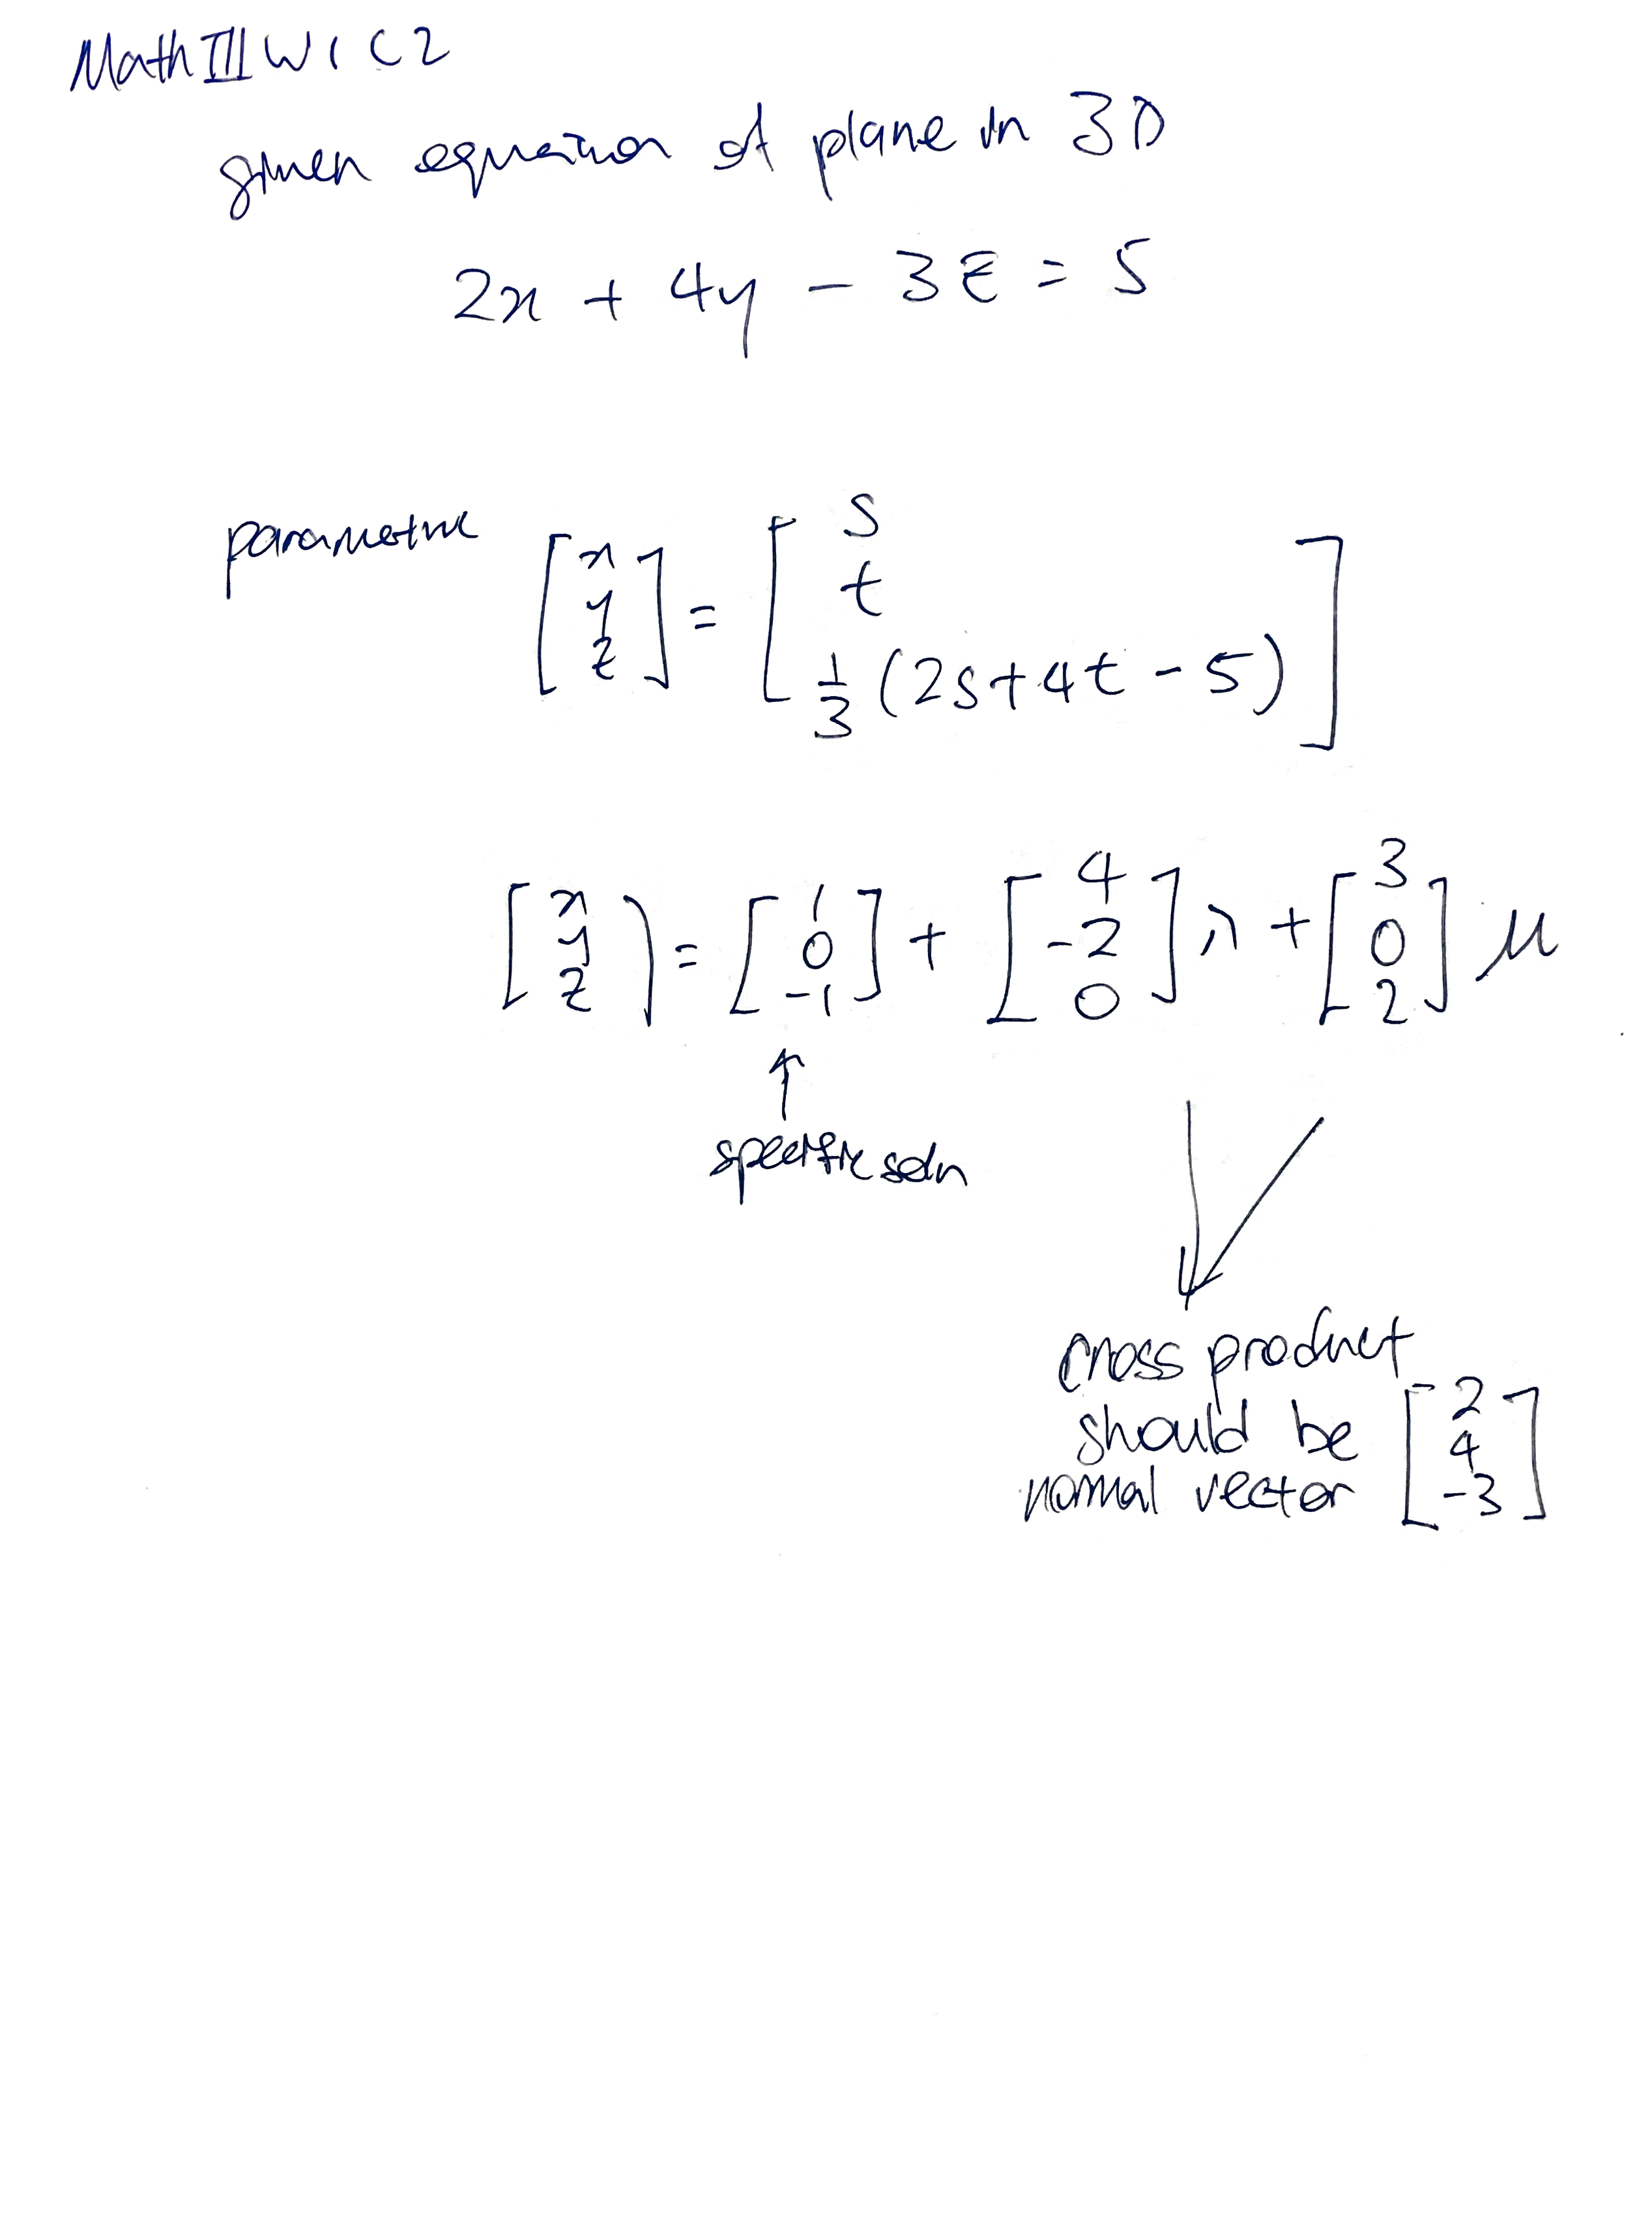 Math III W1 C2
given equation of plane in 3D
2x + 4y - 3z = 5
parametric [x y z] = [s t 1/3 (2s+4t-5)]
[x y z) = [1 0 -1] + [4 -2 0] λ + [3 0 2] μ
↑
specific soln
cross product
should be
normal vector [2 4 -3]